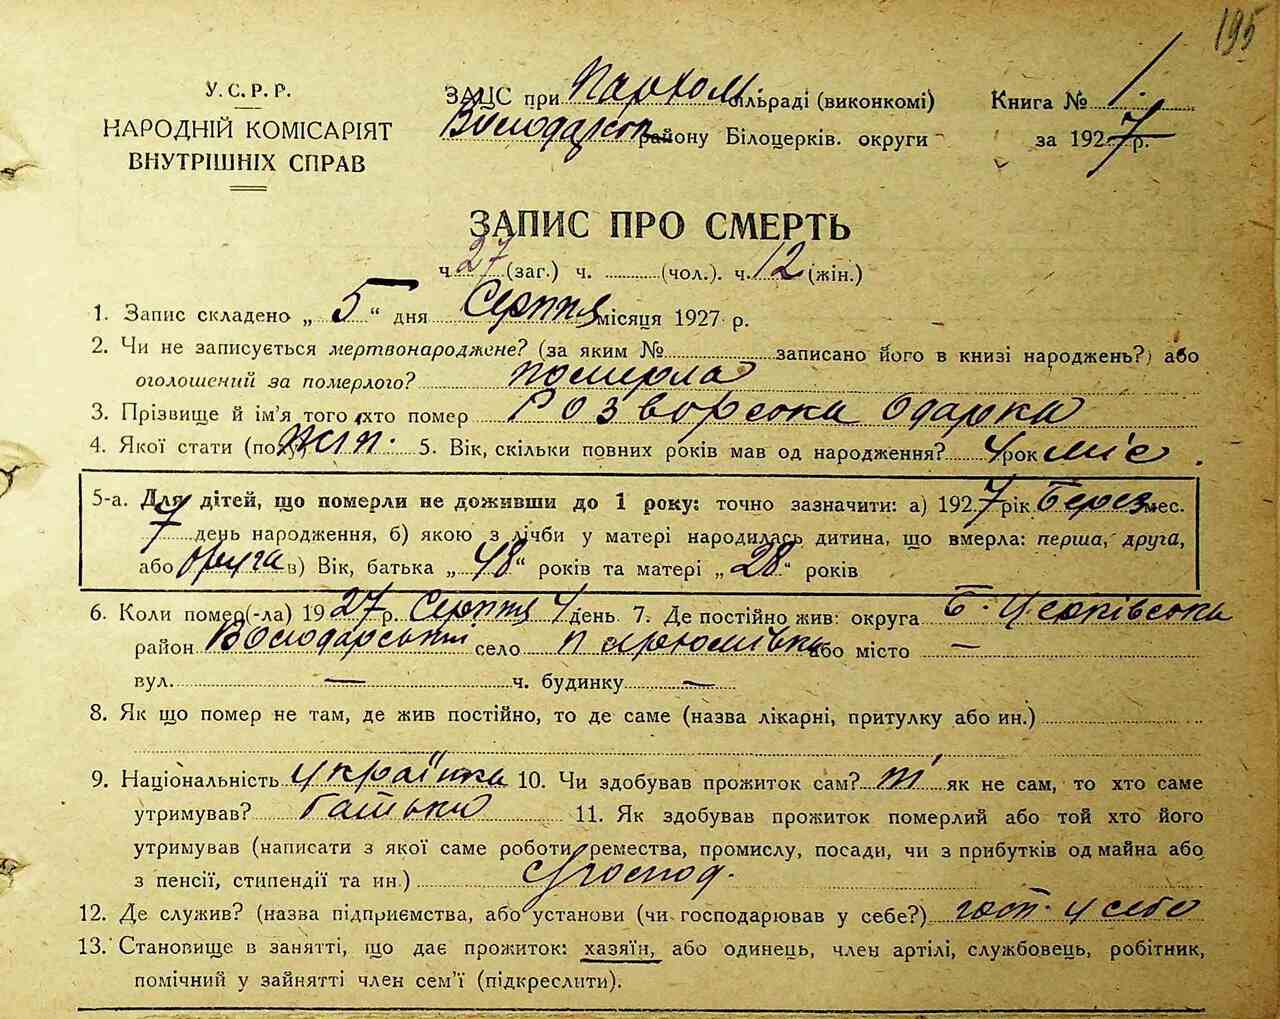 195
У. С. Р. Р.
НАРОДНІЙ КОМІСАРІЯТ
ВНУТРІШНІХ СПРАВ
ЗАЦС при Пархом. сільраді (виконкомі)
Володарськ району Білоцерків. округи
Книга № 1.
за 1927 р.
ЗАПИС ПРО СМЕРТЬ
ч. 27 (заг.) ч. (чол.). ч. 12 (жін.)
1. Запис складено „ 5 “ дня Серпня місяця 1927 р.
2. Чи не записується мертвонароджене? (за яким № записано його в книзі народжень?) або
оголошений за померлого? померла
3. Прізвище й ім’я того, хто помер Розворська Одарка
4. Якої стати (пол) жін. 5. Вік, скільки повних років мав од народження? 4 рок міс.
5-а. Для дітей, що померли не доживши до 1 року: точно зазначити: а) 1927 рік Берез мес.
7 день народження, б) якою з лічби у матері народилась дитина, що вмерла: перша, друга,
або друга в) Вік, батька „ 48 “ років та матері „ 28 “ років
6. Коли помер(-ла) 1927 р. Серпня 4 день 7. Де постійно жив: округа Б. Церківська
район Володарський село Пархомівка або місто —
вул. — ч. будинку —
8. Як що помер не там, де жив постійно, то де саме (назва лікарні, притулку або ин.)
9. Національність українка 10. Чи здобував прожиток сам? ні як не сам, то хто саме
утримував? батько 11. Як здобував прожиток померлий або той хто його
утримував (написати з якої саме роботи, ремества, промислу, посади, чи з прибутків од майна або
з пенсії, стипендії та ин.) с/господ.
12. Де служив? (назва підприємства, або установи (чи господарював у себе?) госп. у себе
13. Становище в занятті, що дає прожиток: хазяїн, або одинець, член артілі, службовець, робітник,
помічний у зайнятті член сем’ї (підкреслити).